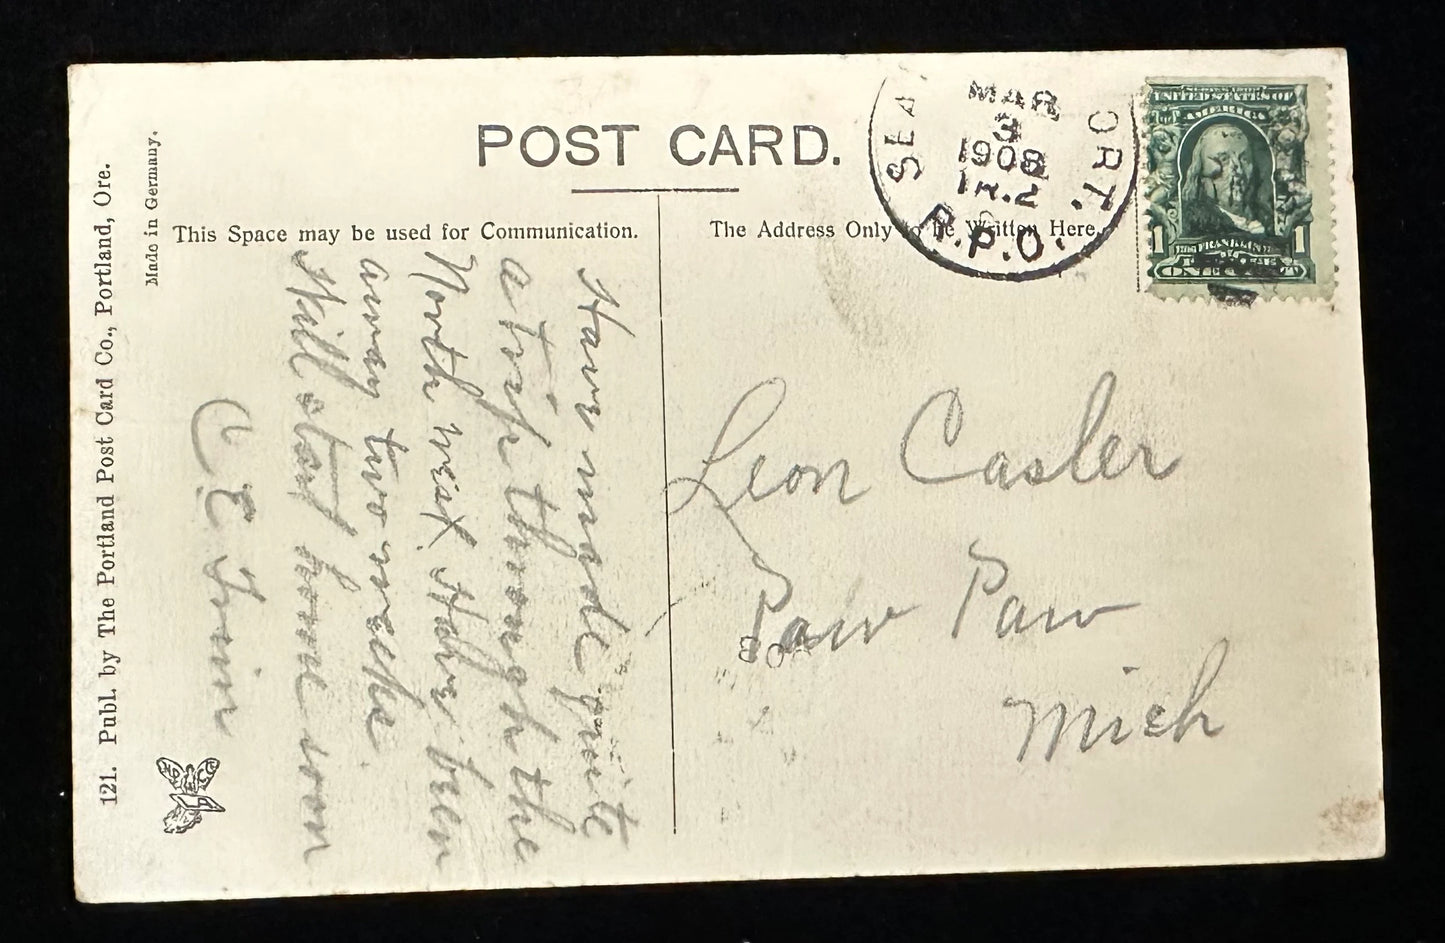 POST CARD.
This Space may be used for Communication.
The Address Only to be Written Here.
121. Publ. by The Portland Post Card Co., Portland, Ore.
Made in Germany.
SEA ORT.
MAR
3
1908
TR. 2
R.P.O.
SERIES 1902
UNITED STATES OF
AMERICA
1 FRANKLIN 1
ONE CENT
Have made quite
a trip through the
North west. Have been
away two weeks.
Will start home soon
C E
Leon Casler
Paw Paw
Mich